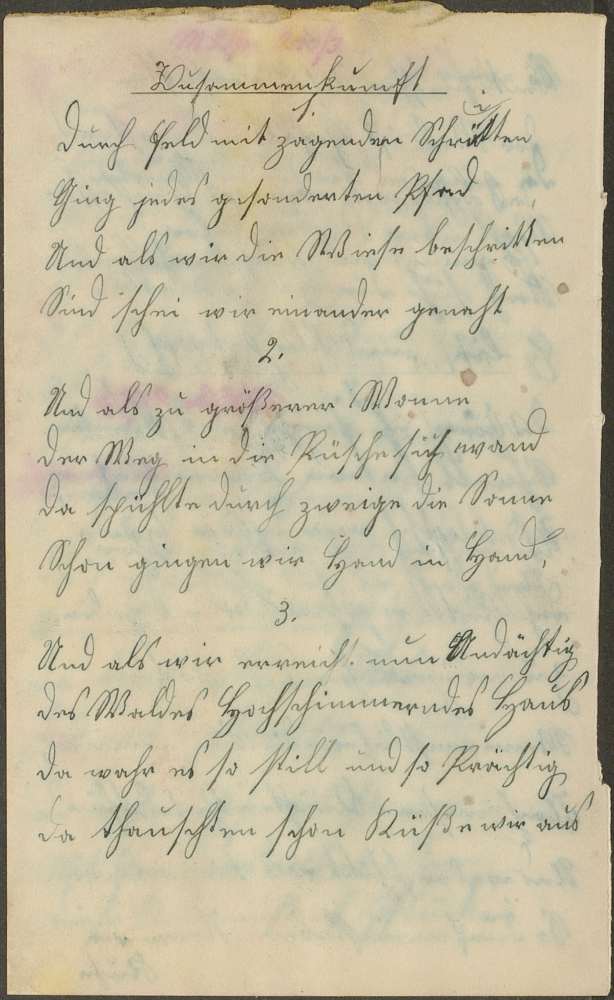 Zusammenkunft
1.
Durch Feld mit zagenden Schritten
Ging jedes gesonderten Pfad
Und als wir die Wiese beschritten
Sind schei wir einander genaht
2.
Und als zu größerer Wonne
der Weg in die Püsche sich wand
da spiehlte durch zweige die Sonne
Schon gingen wir Hand in Hand,
3.
Und als wir erreicht nun Andächtig
des Waldes Hochschimmerndes Haus
da wahr es so still und so Prächtig
da thauschten schon Küße wir aus